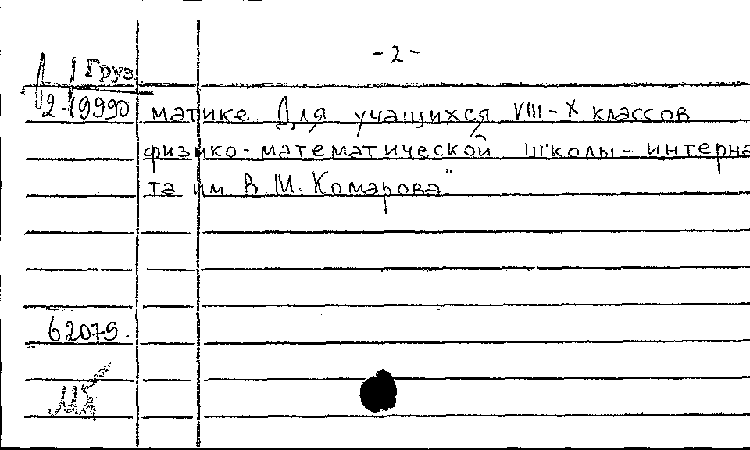 -2-
Груз
2-19990 матике Для учащихся VIII-X классов
физико-математической школы-интерна
та им В.М. Комарова"
62075.